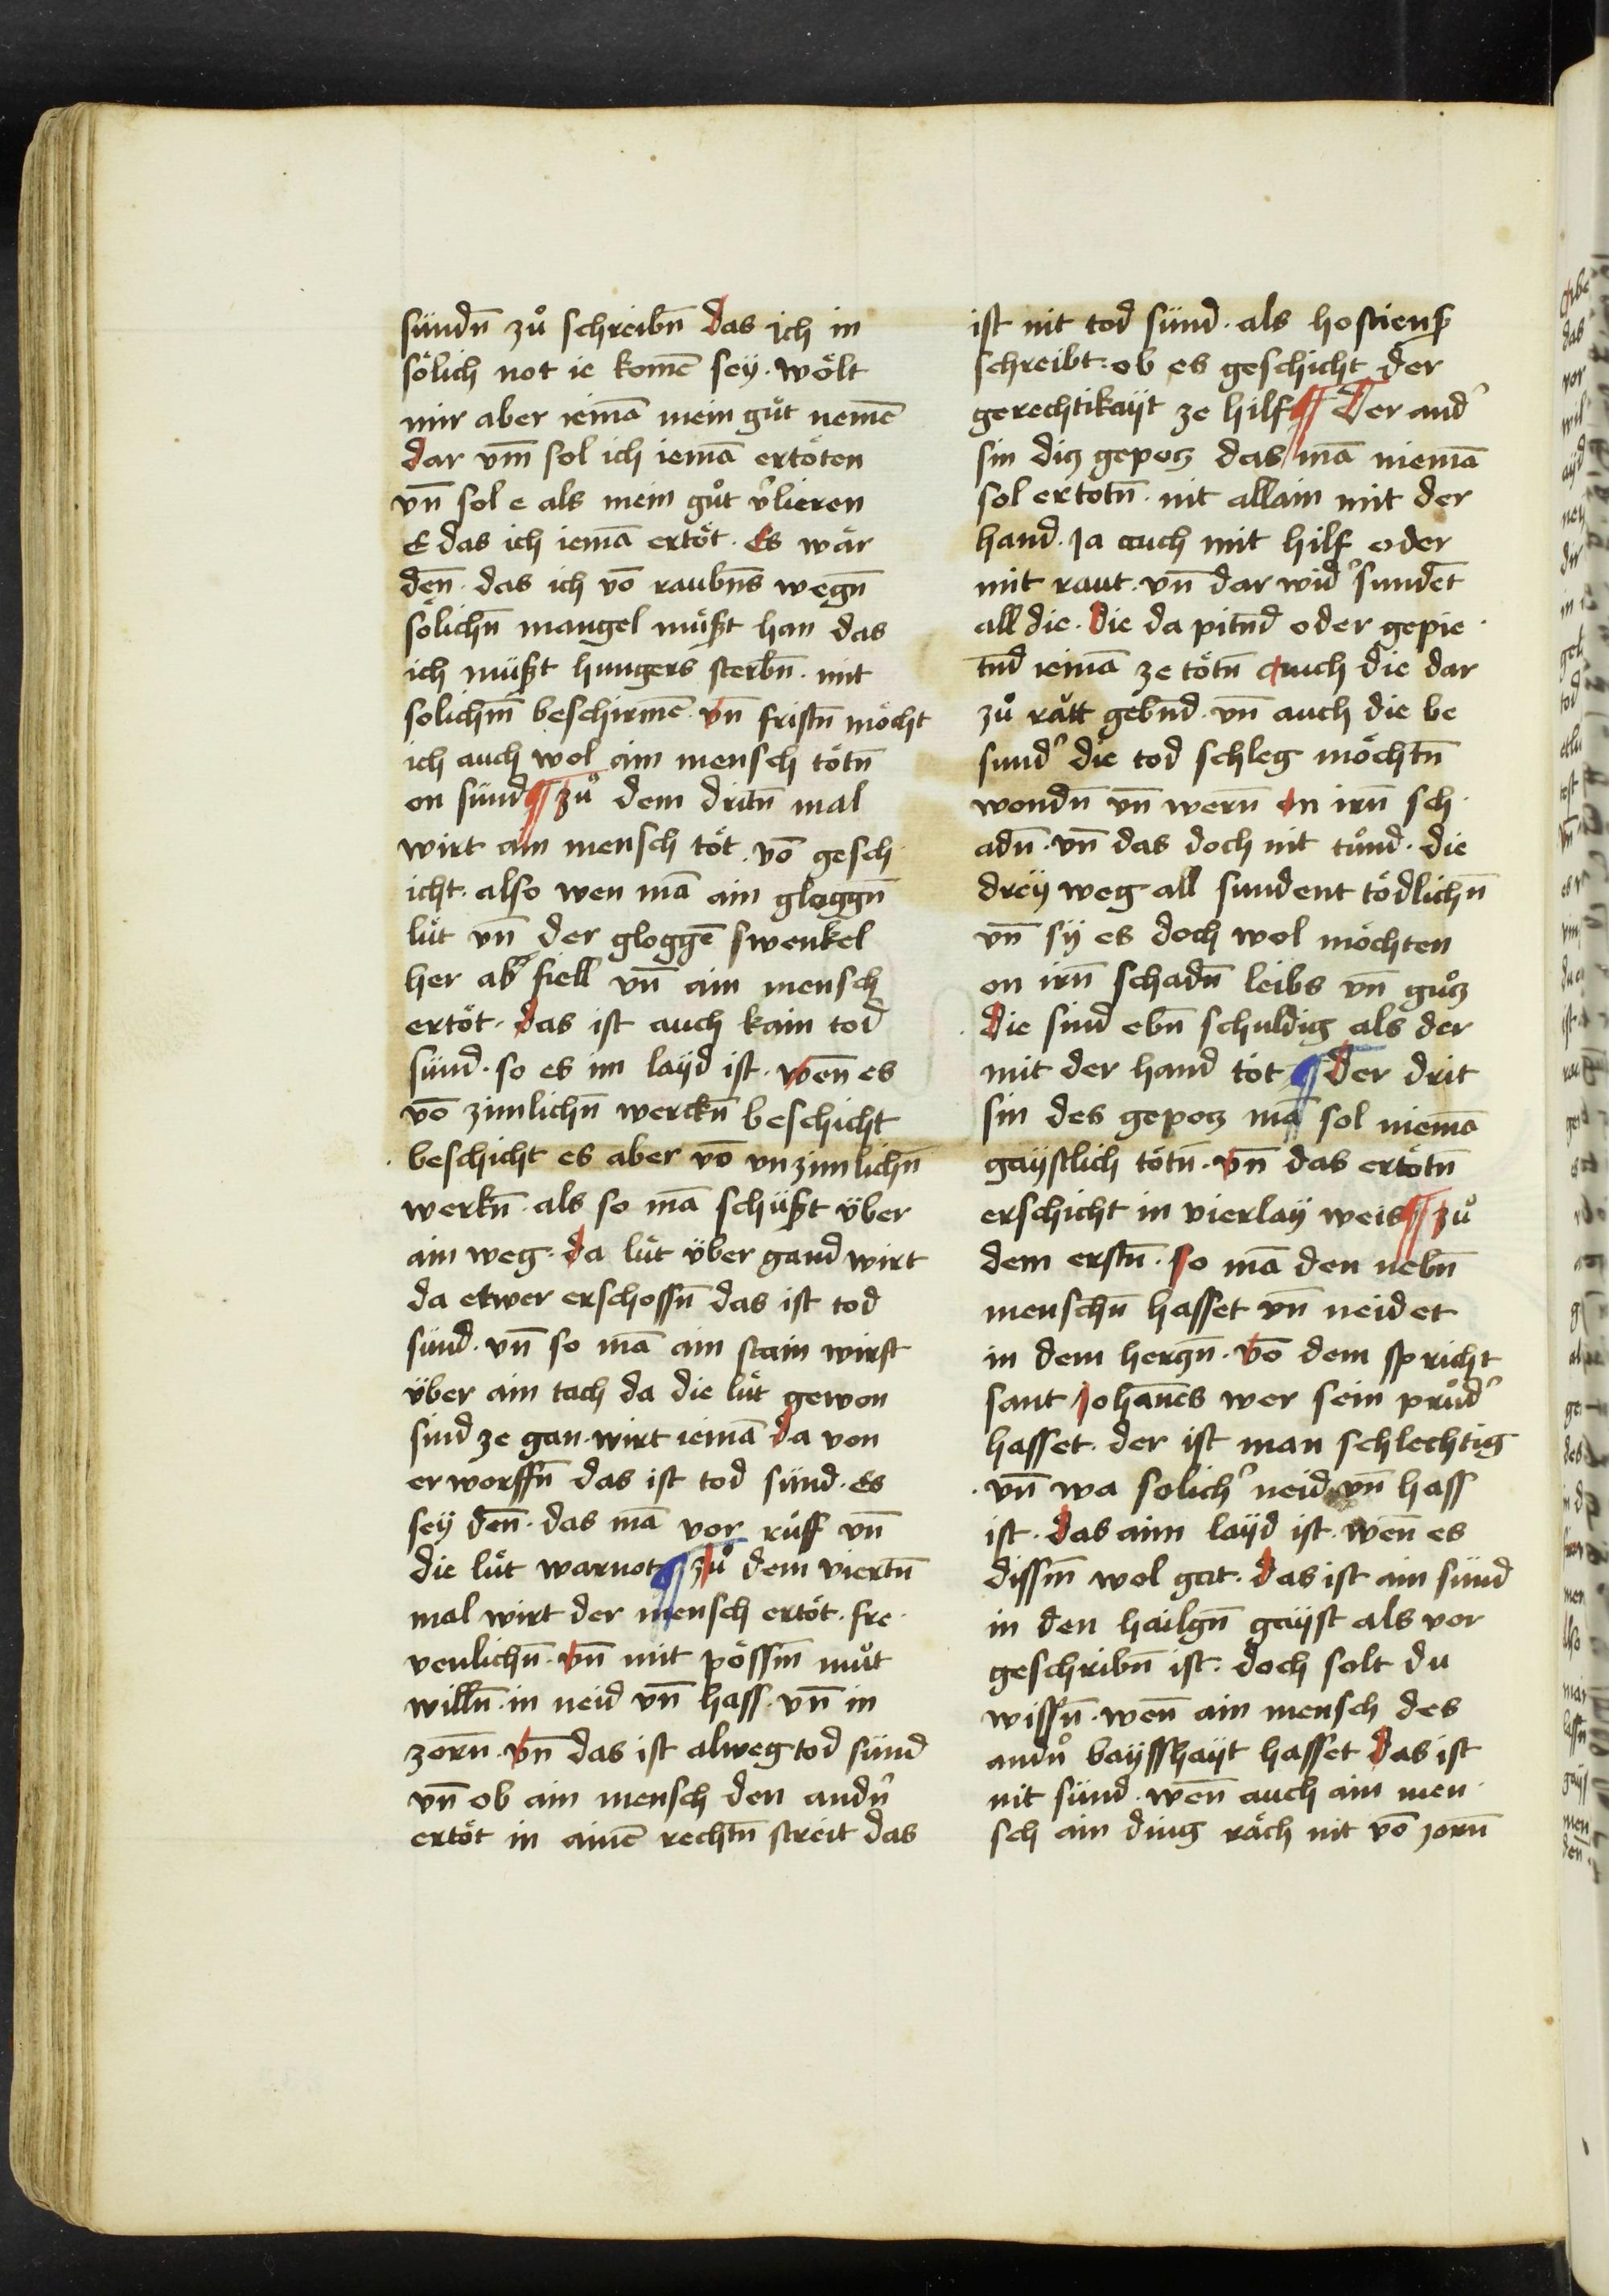 sündn̄ zů schreibn̄ das ich in
sölich not ie komē sey · wölt
mir aber iemā mein gůt nemē
dar vm̄ sol ich iemā ertöten
vn̄ sol e als mein gůt v̉lieren
E das ich iemā ertöt · Es wär
den̄ · das ich vō raubn̄s wegn̄
sölichn̄ mangel müßt han das
ich müßt hungers sterbn̄ · mit
solichm̄ beschirmē · vn̄ fristn̄ möcht
ich auch wol ain mensch tötn̄
on sünd ¶ zů dem dritn̄ mal
wirt ain mensch töt · vō gesch
icht · also wen mā ain gloggn̄
lüt vn̄ der gloggē swenkel
her ab fiell vn̄ ain mensch
ertöt · das ist auch kain tod
sünd · so es im layd ist · wen̄ es
vō zimlichn̄ werckn̄ beschicht
· beschicht es aber vō vnzimlichn̄
werkn̄ · als so mā schüßt über
ain weg · da lüt über gand wirt
da etwer erschossn̄ das ist tod
sünd · vn̄ so mā ain stain wirft
über ain tach da die lüt gewon
sind ze gan · wirt iemā da von
erworffn̄ das ist tod sünd · Es
sey den̄ · das mā vor rüff vn̄
die lüt warnot ¶ zů dem viertn̄
mal wirt der mensch ertöt · fre ·
venlichn̄ · vn̄ mit pössm̄ můt
willn̄ · in neid vn̄ hass · vn̄ in
zorn · vn̄ das ist alweg tod sünd
vn̄ ob ain mensch den andn̉
ertöt in ainē rechtn̄ streit das
ist nit tod sünd · als hostienß
schreibt · ob es geschicht der
gerechtikayt ze hilf ¶ Der and̉
sin diz gepotz das mā niemā
sol ertotn̄ · nit allain mit der
hand · Ja auch mit hilf oder
mit raut · vn̄ dar wid̉ sundēt
all die · Die da pitn̄d oder gepie ·
tn̄d iemā ze tötn̄ Auch die dar
zů rätt gebn̄d · vn̄ auch die be
sund̉ die tod schleg möchtn̄
wendn̄ vn̄ wern̄ on irn̄ sch ·
adn̄ · vn̄ das doch nit tůnd · die
drey weg all sundent tödlichn̄
vn̄ sy es doch wol möchten
on irn̄ schadn̄ leibs vn̄ gůtz
· Die sind ebn̄ schuldig als der
mit der hand töt ¶ Der drit
sin des gepotz mā sol niemā
gaystlich tötn̄ · vn̄ das ertötn̄
erschicht in vierlay weis ¶ zů
dem erstn̄ · so mā den nebn̄
menschn̄ hasset vn̄ neidet
in dem hertzn̄ · vō dem spricht
sant Johan̄es wer sein průd̉
hasset · der ist man schlechtig
· vn̄ wa solich̉ neid vn̄ hass
ist · das aim layd ist · wen̄ es
dissm̄ wol gat · das ist ain sünd
in den hailgn̄ gayst als vor
geschribn̄ ist · doch solt du
wissn̄ · wen̄ ain mensch des
andn̉ bayßhayt hasset das ist
nit sünd · wen̄ auch ain men ·
sch ain ding räch nit vō zorn̄